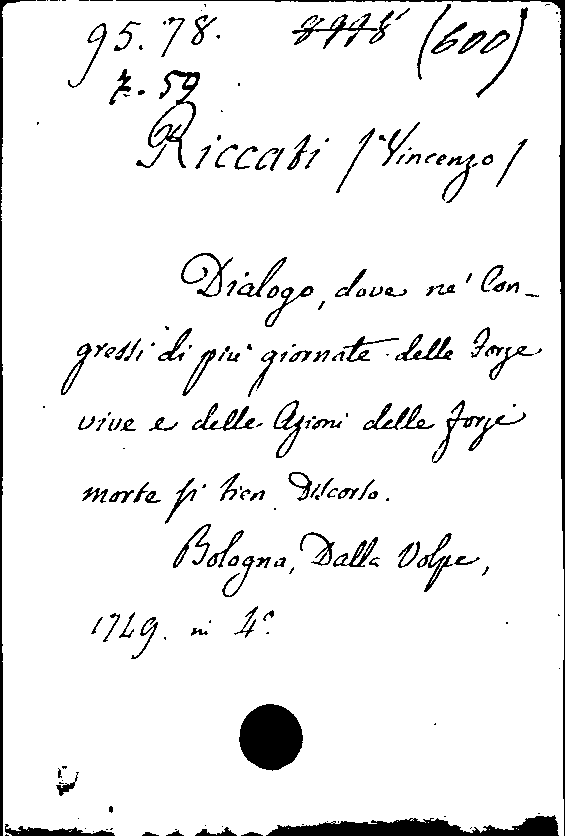 95.78. 8998 (600)
7.59
Riccati /Vincenzo/
Dialogo, dove ne' Con-
gressi di piu giornate delle Forze
vive e delle Azioni delle forze
morte si tien Discorso.
Bologna, Dalla Volpe,
1749. in 4°.